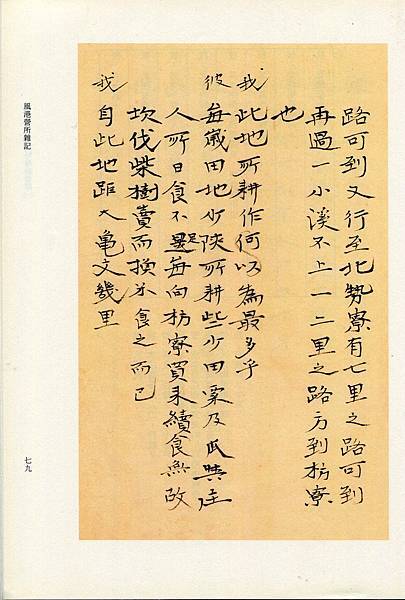 路可到又行至北勢寮有七里之路可到
再過一小溪不上一二里之路方到枋寮
也
我 此地所耕作何以為最多乎
彼 每歲田地少陝所耕些少田粟及瓜
人所日食不足每向枋寮買来續食無改
坎伐柴樹賣而換米食之而已
我 自此地距大亀文幾里
風港營所雜記
七九